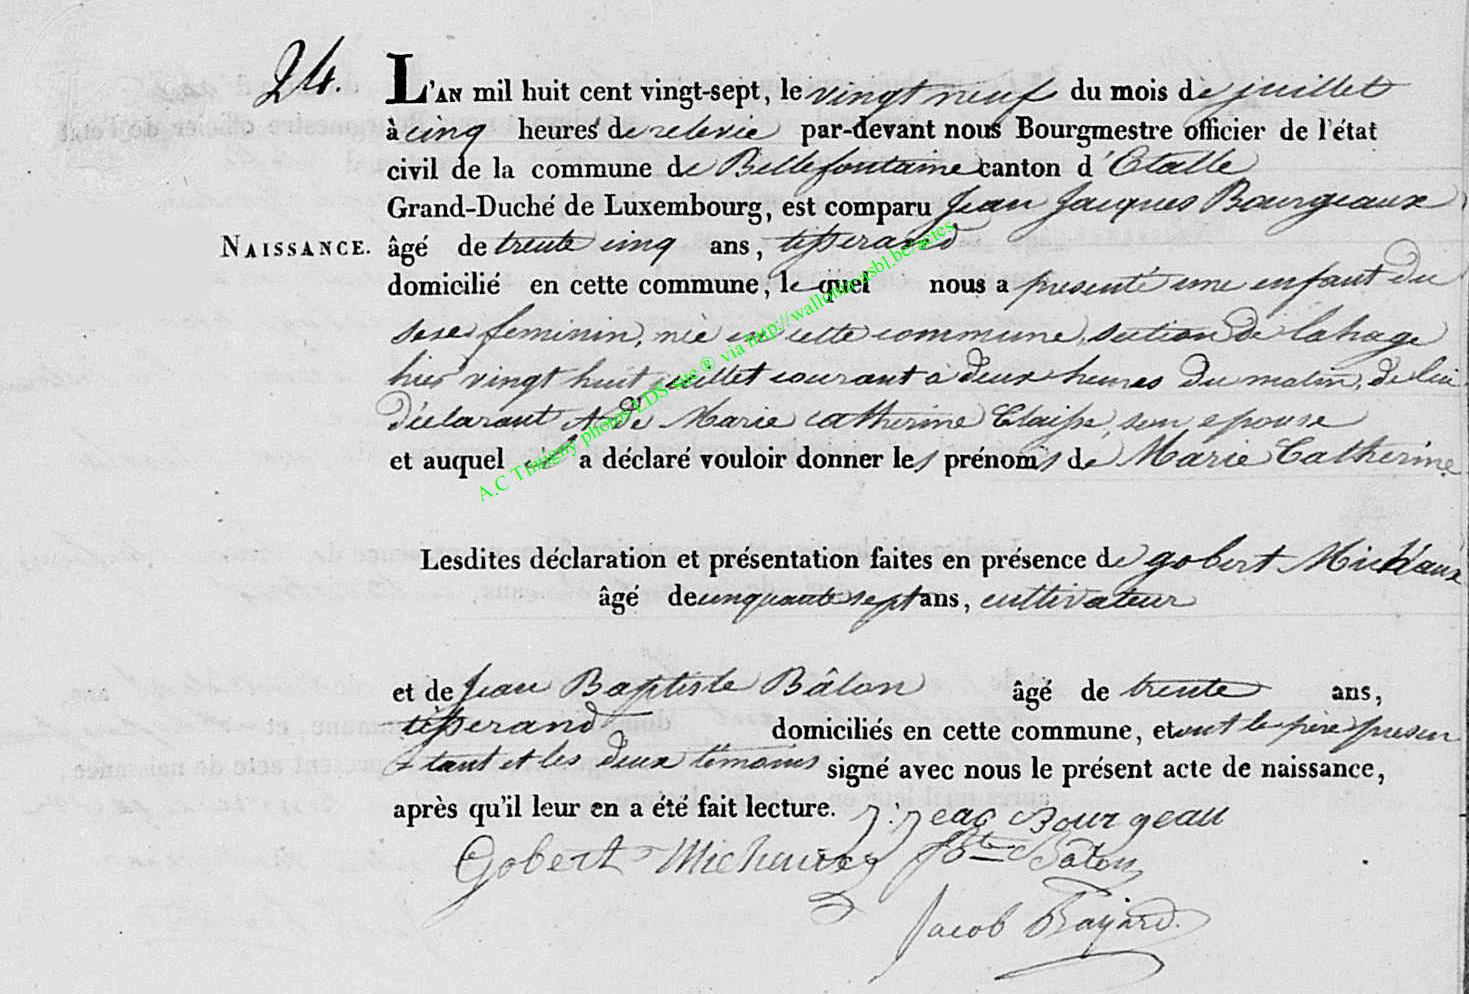 24.
L'AN mil huit cent vingt-sept, le vingt neuf du mois de juillet
à cinq heures de relevée par-devant nous Bourgmestre officier de l'état
civil de la commune de Bellefontaine canton d'Etalle
Grand-Duché de Luxembourg, est comparu Jean Jacques Bourgeaux
NAISSANCE. âgé de trente cinq ans, tisserand
domicilié en cette commune, le quel nous a presenté une enfant du
sexe feminin, née en cette commune, section de lahage
hier vingt huit juillet courant à deux heures du matin, de lui
déclarant & de Marie Catherine Claisse, son epouse
et auquel il a déclaré vouloir donner les prénoms de Marie Catherine
Lesdites déclaration et présentation faites en présence de gobert Michaux
âgé de cinquante sept ans, cultivateur
et de Jean Baptiste Bâlon âgé de trente ans,
tisserand domiciliés en cette commune, et ont le père presen
tant et les deux témoins signé avec nous le présent acte de naissance,
après qu'il leur en a été fait lecture. J: Jeac Bourgeau
Gobert Michaux JBte Bâlon
Jacob Fayard.
A.C Thugny photos LDS site ® via http://wallonia.asbl.be/actes